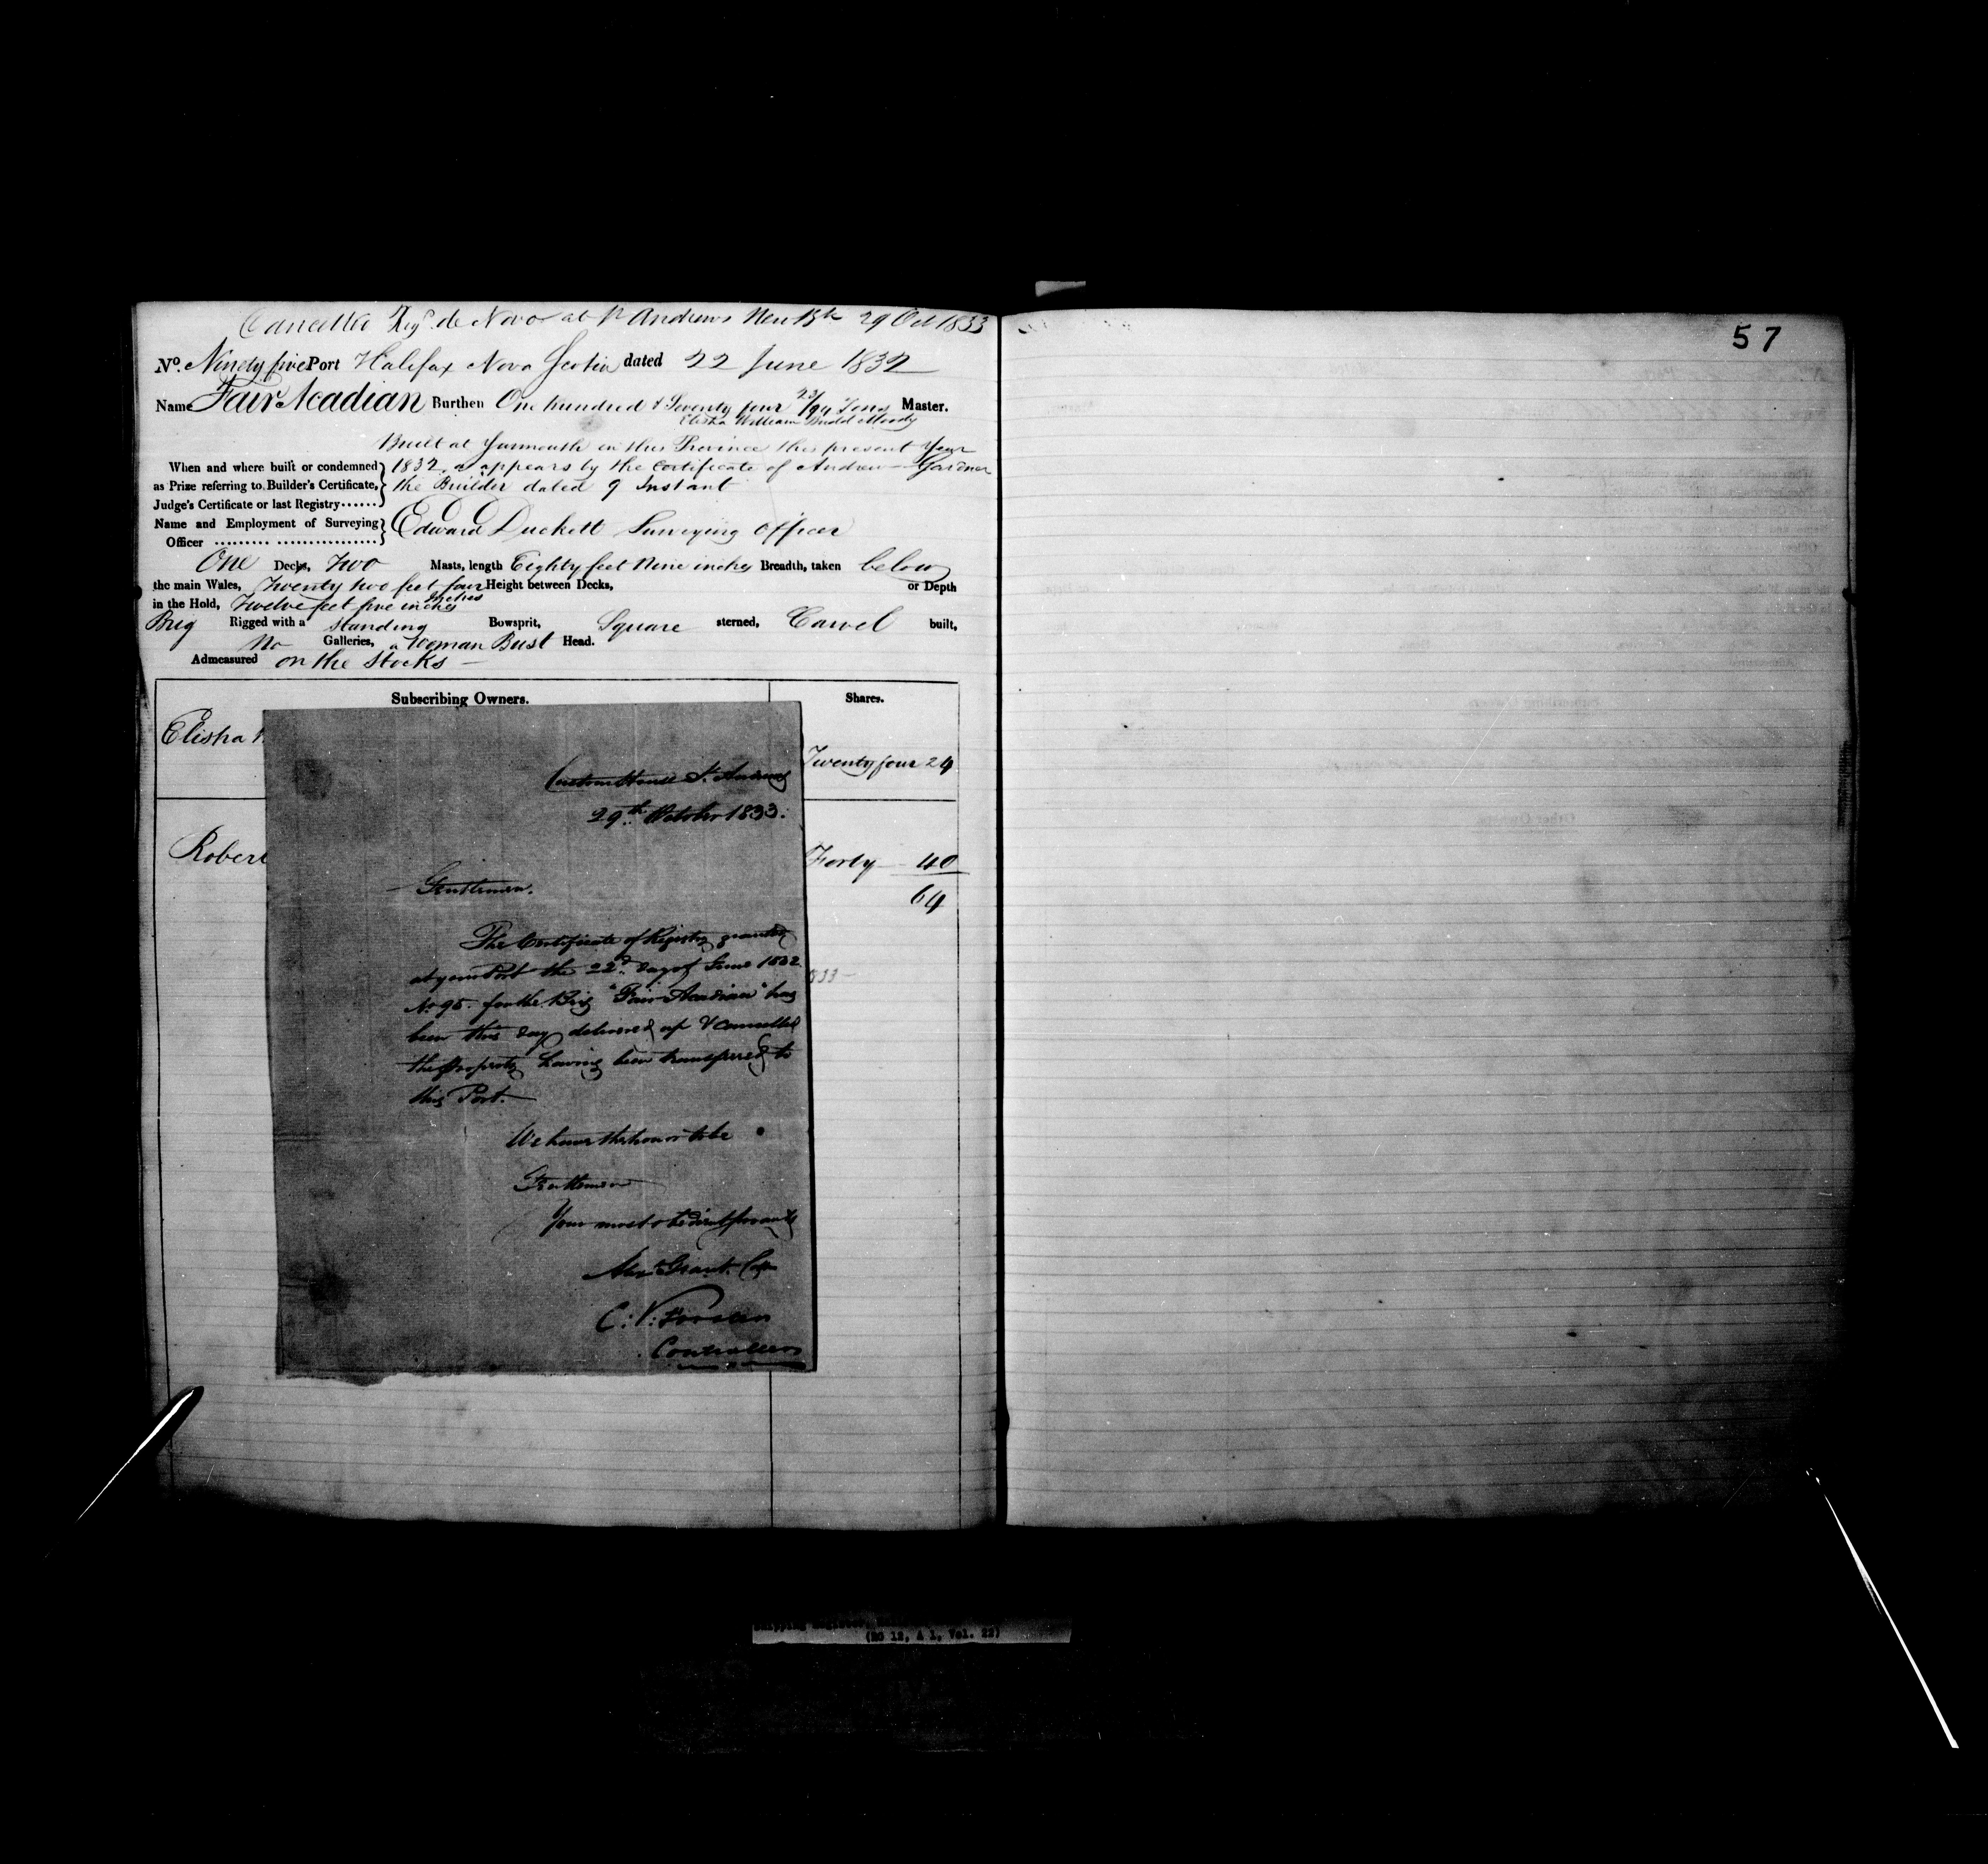 Cancelled Reg.d de Novo at St Andrews New Bk 29 Oct 1833
57
No. Ninety five Port Halifax Nova Scotia dated 22 June 1832
Name Fair Acadian Burthen One hundred & Seventy four 23/94 Tons Master.
Elisha William Budd Moody
Built at Yarmouth in this Province this present Year
When and where built or condemned 1832, as appears by the Certificate of Andrew Gardner
as Prize referring to Builder's Certificate, the Builder dated 9 Instant
Judge's Certificate or last Registry......
Name and Employment of Surveying Edward Duckett Surveying Officer
Officer ......... ................
One Decks, Two Masts, length Eighty feet Nine inches Breadth, taken below
the main Wales, Twenty two feet four inches Height between Decks, or Depth
in the Hold, Twelve feet five inches
Brig Rigged with a standing Bowsprit, Square sterned, Carvel built,
No Galleries, a Woman Bust Head.
Admeasured on the Stocks
Subscribing Owners. Shares.
Elisha
Twenty four 24
Robert
Forty 40
64
Custom House St. Andrews
29th October 1833.
Gentlemen.
The Certificate of Registry granted
at your Port the 22d day of June 1832
No 95. for the Brig "Fair Acadian" has
been this day delivered up & cancelled
the property having been transferred to
this Port.
We have the honor to be
Gentlemen
Your most obedient servants
Alexr Grant. Col
C. V. Forster
Controller
(RG 12, A 1, Vol. 22)